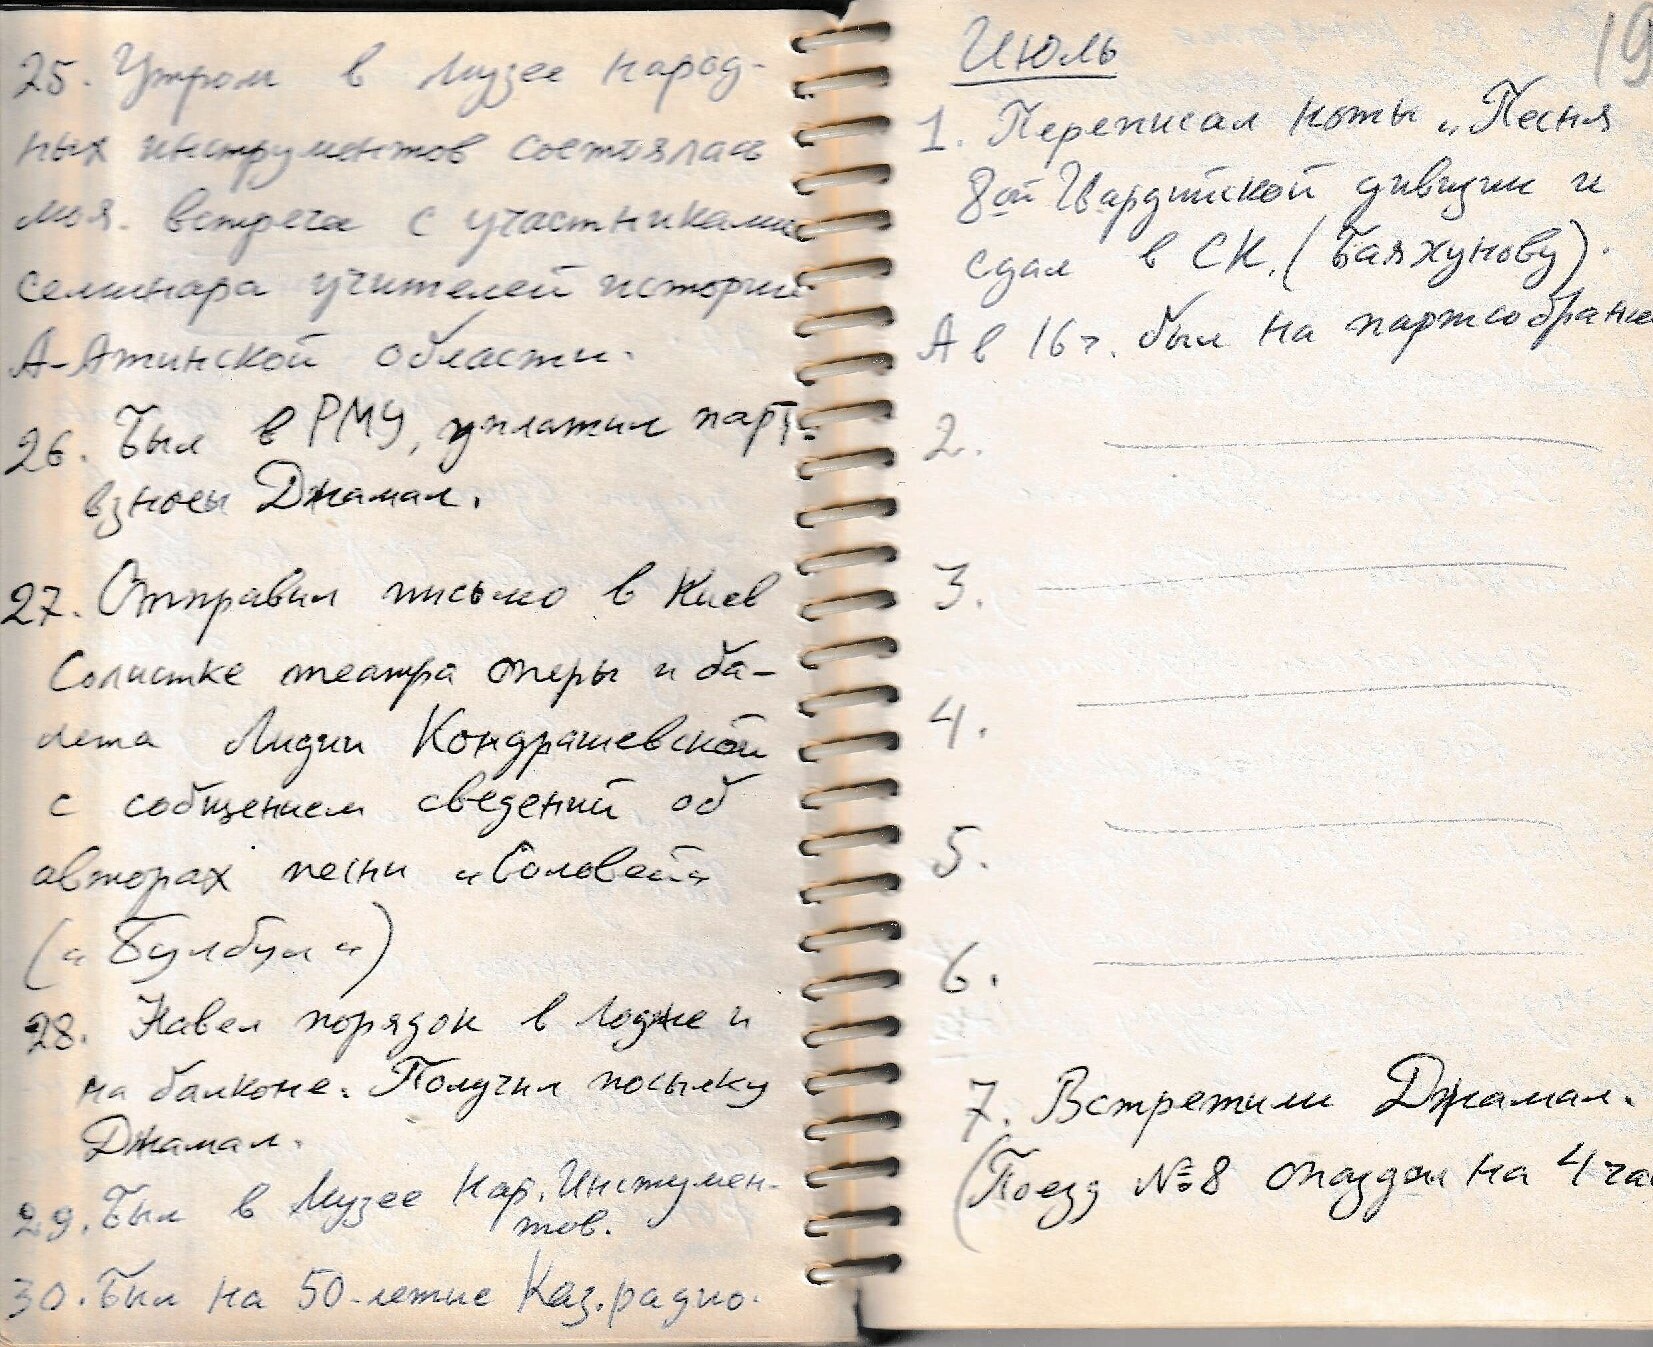 25. Утром в Музее народ-
ных инструментов состоялась
моя встреча с участниками
семинара учителей истории
А-Атинской области.
26. Был в РМУ, уплатил парт.
взносы Джамал.
27. Отправил письмо в Киев
Солистке театра оперы и ба-
лета Лидии Кондрашевской
с сообщением сведений об
авторах песни „Соловей"
(„Булбул")
28. Навел порядок в лодже и
на балконе. Получил посылку
Джамал.
29. Был в Музее нар. Инстумен-
тов.
30. Был на 50-летие Каз.радио.
19
Июль
1. Переписал ноты „Песня
8ой Гвардийской дивизии и
сдал в СК. (Баяхунову).
А в 16 ч. был на партсобрание
2.
3.
4.
5.
6.
7. Встретили Джамал.
(Поезд №8 опоздал на 4 час